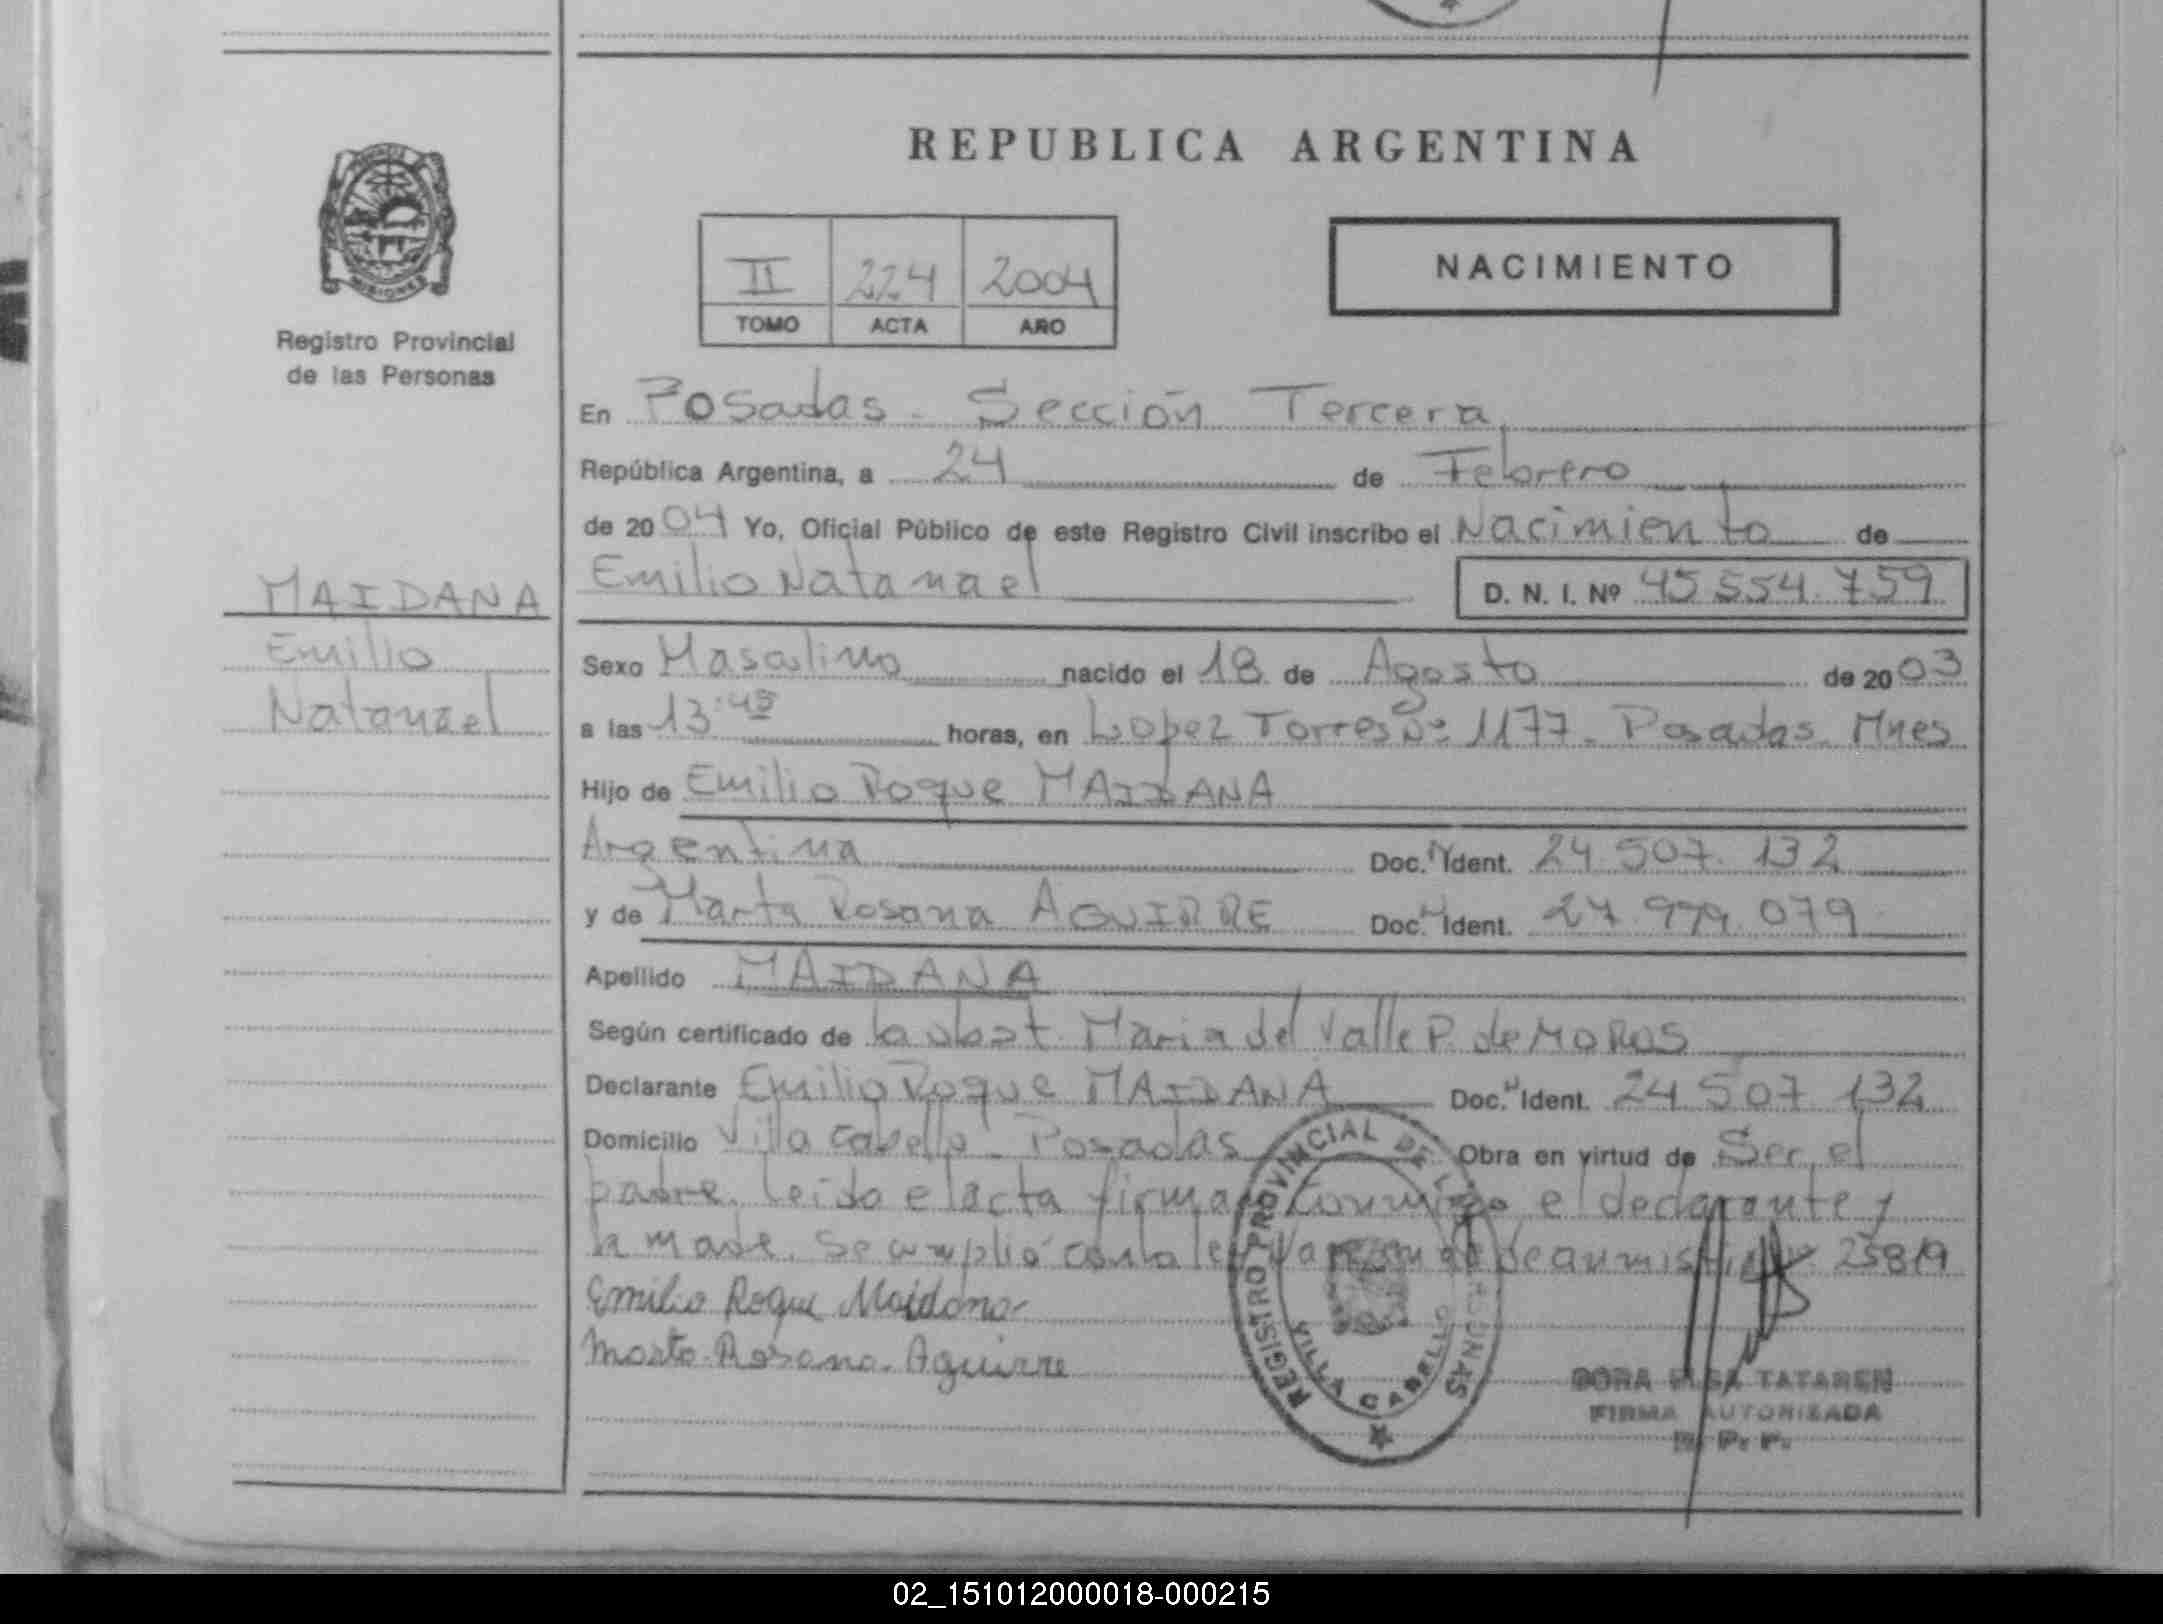 REPUBLICA ARGENTINA
MISIONES
Registro Provincial
de las Personas
II 224 2004
TOMO ACTA AÑO
NACIMIENTO
En Posadas - Sección Tercera
República Argentina, a 24 de Febrero
de 2004 Yo, Oficial Público de este Registro Civil inscribo el Nacimiento de
MAIDANA
Emilio
Natanael
Emilio Natanael
D. N. I. Nº 45 554. 759
Sexo Masculino nacido el 18 de Agosto de 2003
a las 13:45 horas, en Lopez Torres Nº 1177. Posadas Mnes
Hijo de Emilio Roque MAIDANA
Argentina Doc. N Ident. 24 507. 132
y de Marta Rosana AGUIRRE Doc. N Ident. 27 979. 079
Apellido MAIDANA
Según certificado de la obst. Maria del Valle P. de MOROS
Declarante Emilio Roque MAIDANA Doc. N Ident. 24 507 132
Domicilio Villa Cabello - Posadas Obra en virtud de Ser el
padre. Leido el acta firman Conmigo el declarante y
la madre. Se cumplió con la ley de amnistia 25819
Emilio Roque Maidana
Marta Rosana Aguirre
REGISTRO PROVINCIAL DE LAS PERSONAS
VILLA CABELLO
DORA ELSA TATAREN
FIRMA AUTORIZADA
R. P. P.
02_151012000018-000215